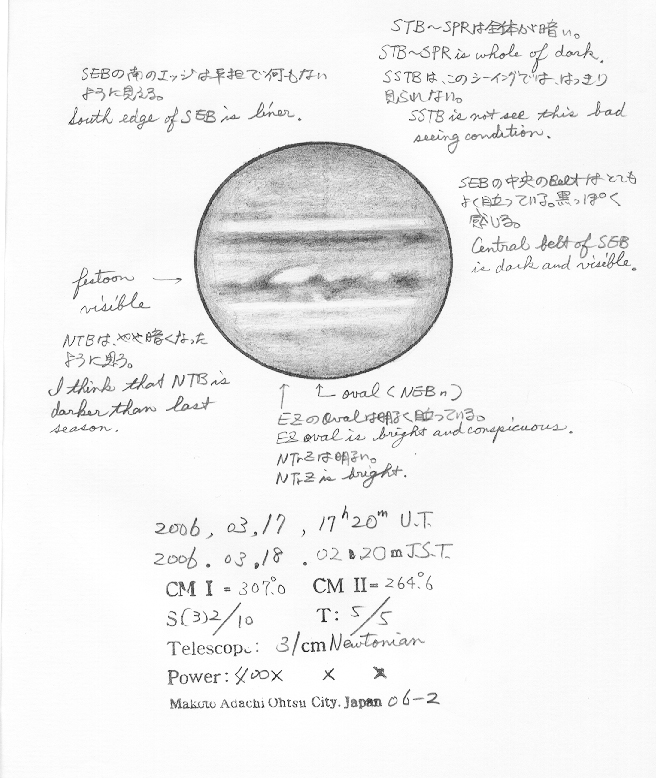 STB～SPRは全体が暗い。
STB～SPR is whole of dark.
SSTBは、このシーイングでは、はっきり
見られない。
SSTB is not see this bad
seeing condition.
SEBの南のエッジは平担で何もない
ように見える。
South edge of SEB is liner.
SEBの中央のBeltはとても
よく目立っている。黒っぽく
感じる。
Central belt of SEB
is dark and visible.
festoon →
visible
NTBは、やや暗くなった
ように思う。
I think that NTB is
darker than last
season.
oval (NEBn)
EZのOvalは明るく目立っている。
EZ oval is bright and conspicuous.
NTrZは明るい。
NTrZ is bright.
2006, 03, 17, 17h20m U.T.
2006. 03. 18. 02h20m J.S.T.
CM I = 307.°0 CM II= 264.°6
S(3)2/10 T: 5/5
Telescope: 31cm Newtonian
Power: 400× × ×
Makoto Adachi Ohtsu City, Japan 06-2